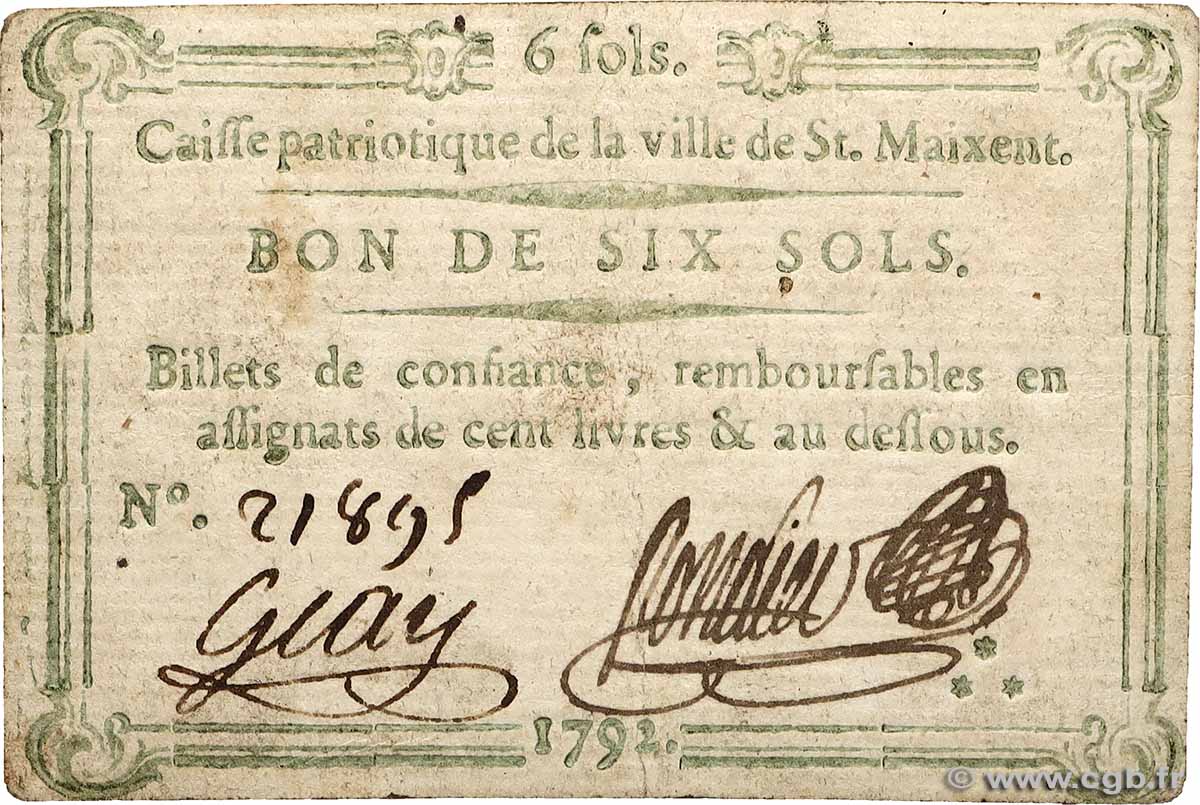 6 ſols.
Caiſſe patriotique de la ville de St. Maixent.
BON DE SIX SOLS.
Billets de confiance, rembourſables en
aſſignats de cent livres & au deſſous.
Nº. 21895
1792.
© www.cgb.fr